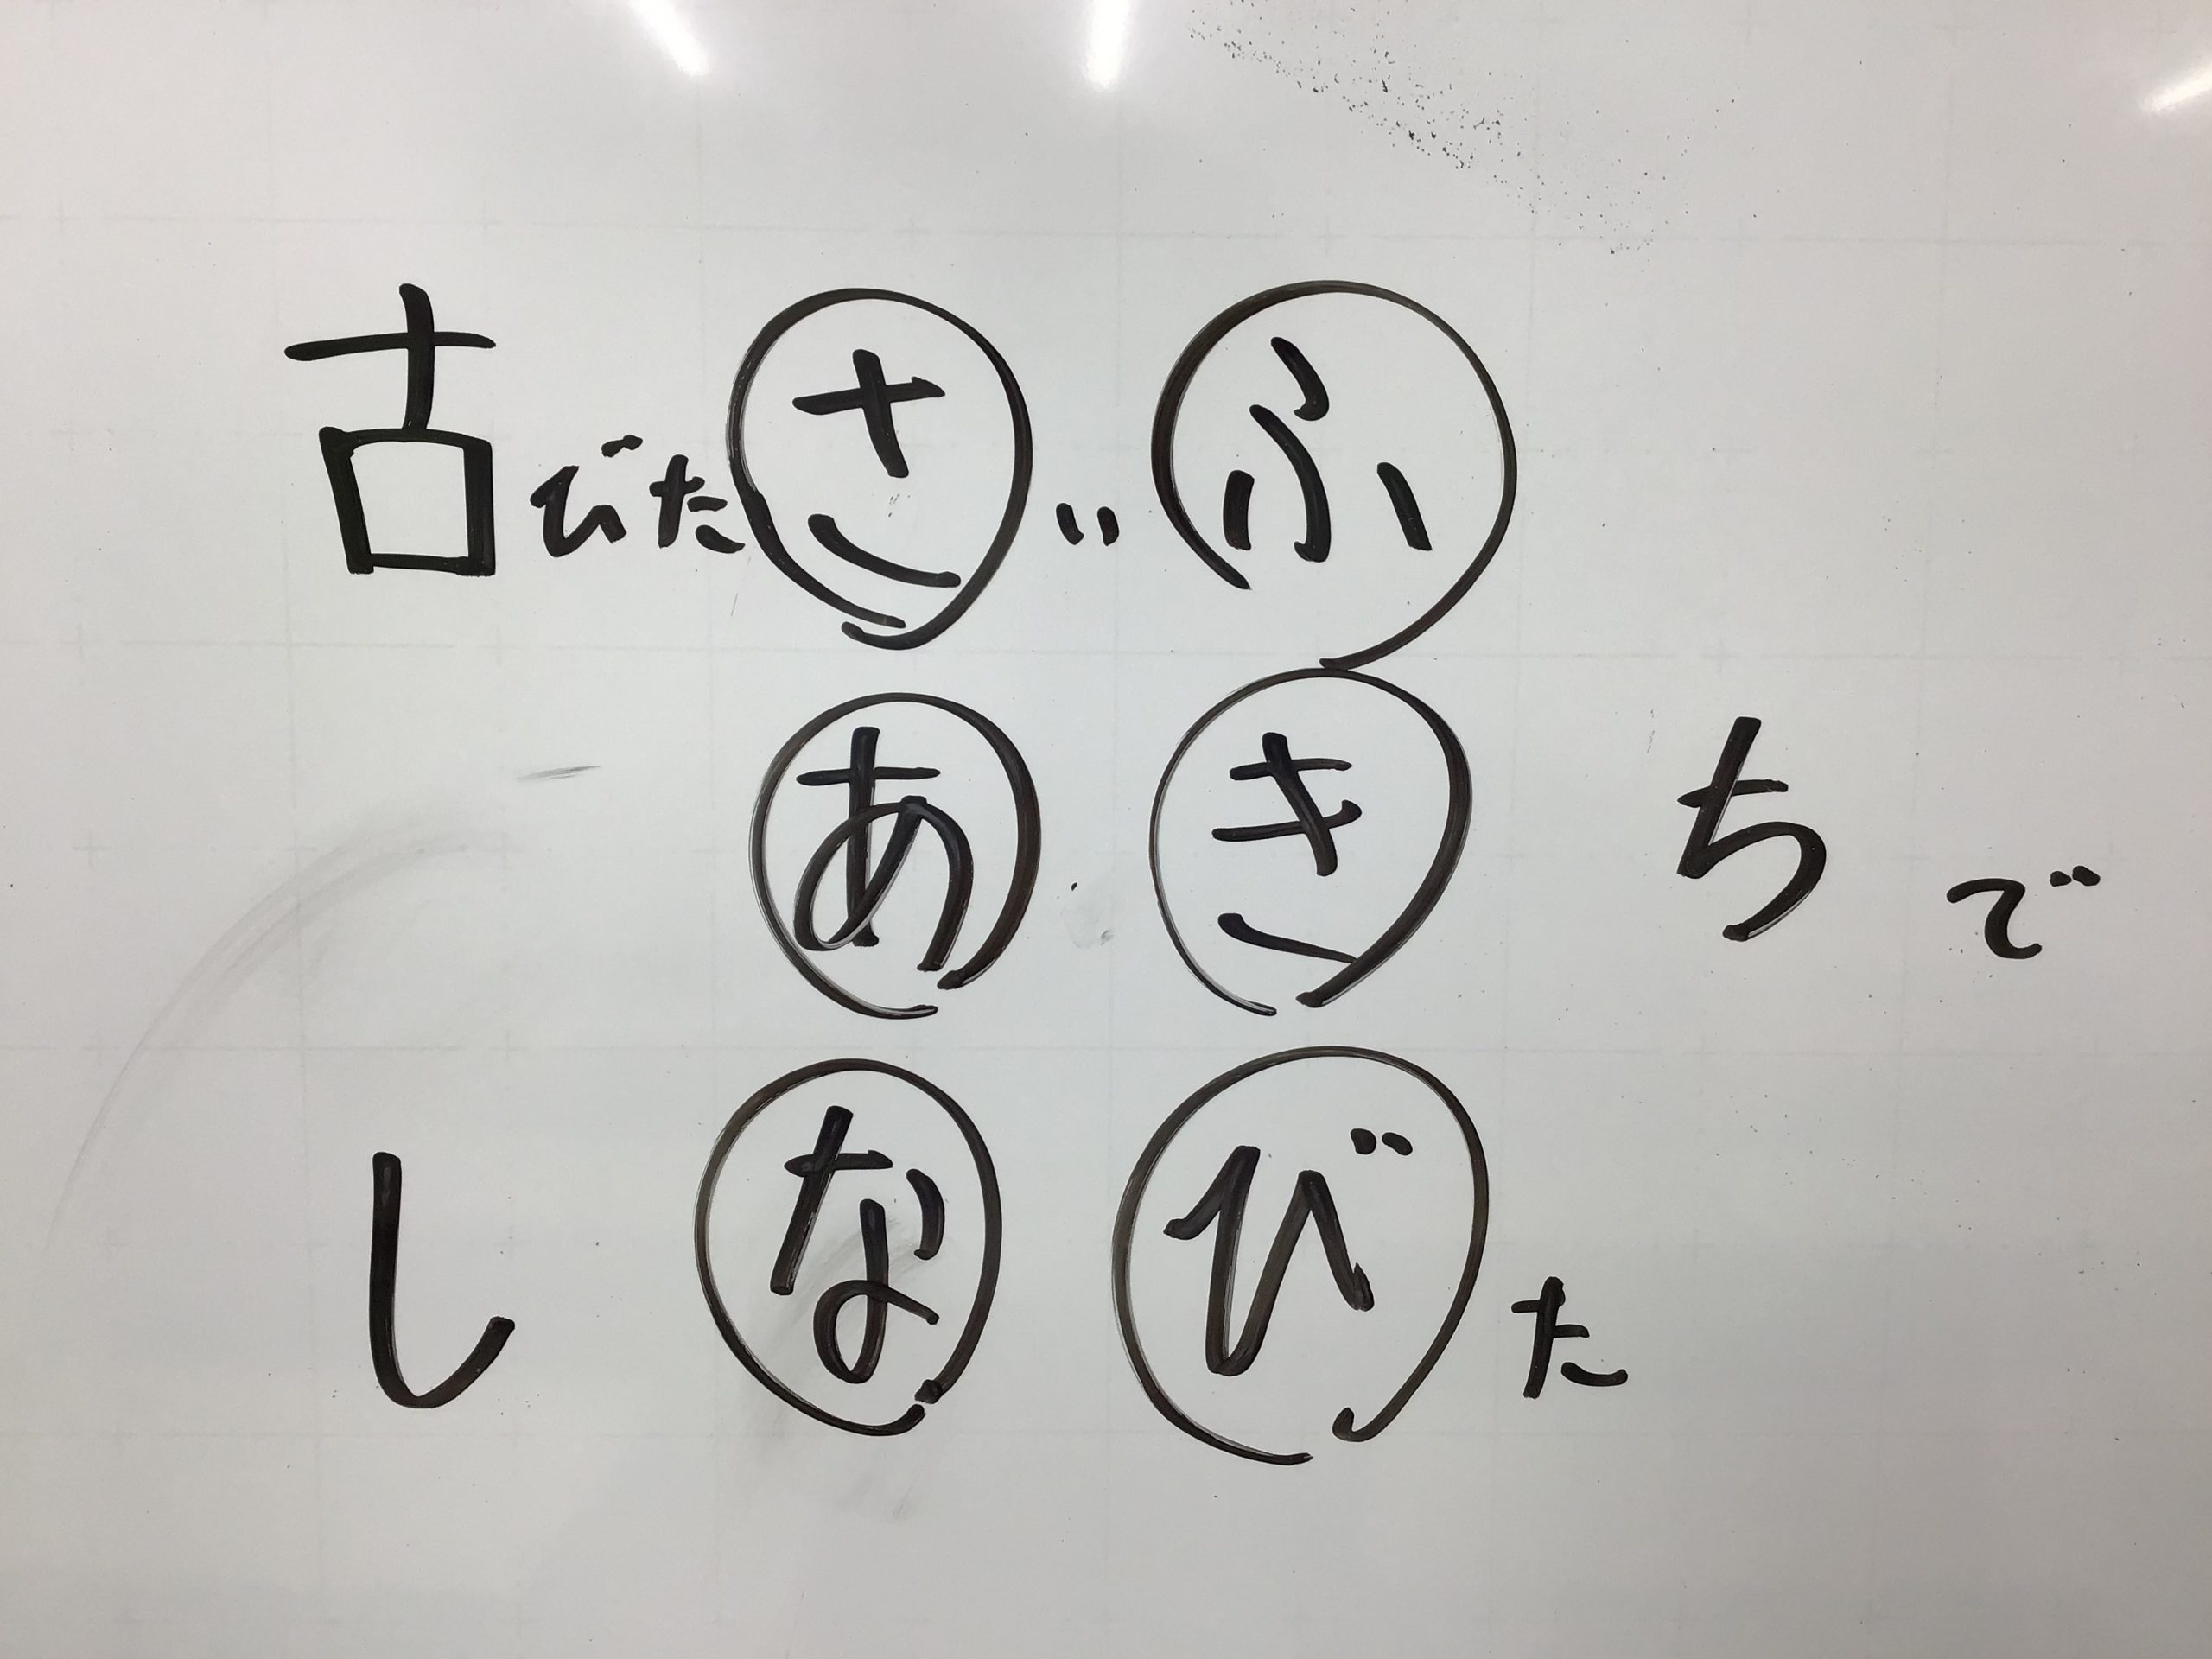 古びたさいふ
あきちで
しなびた